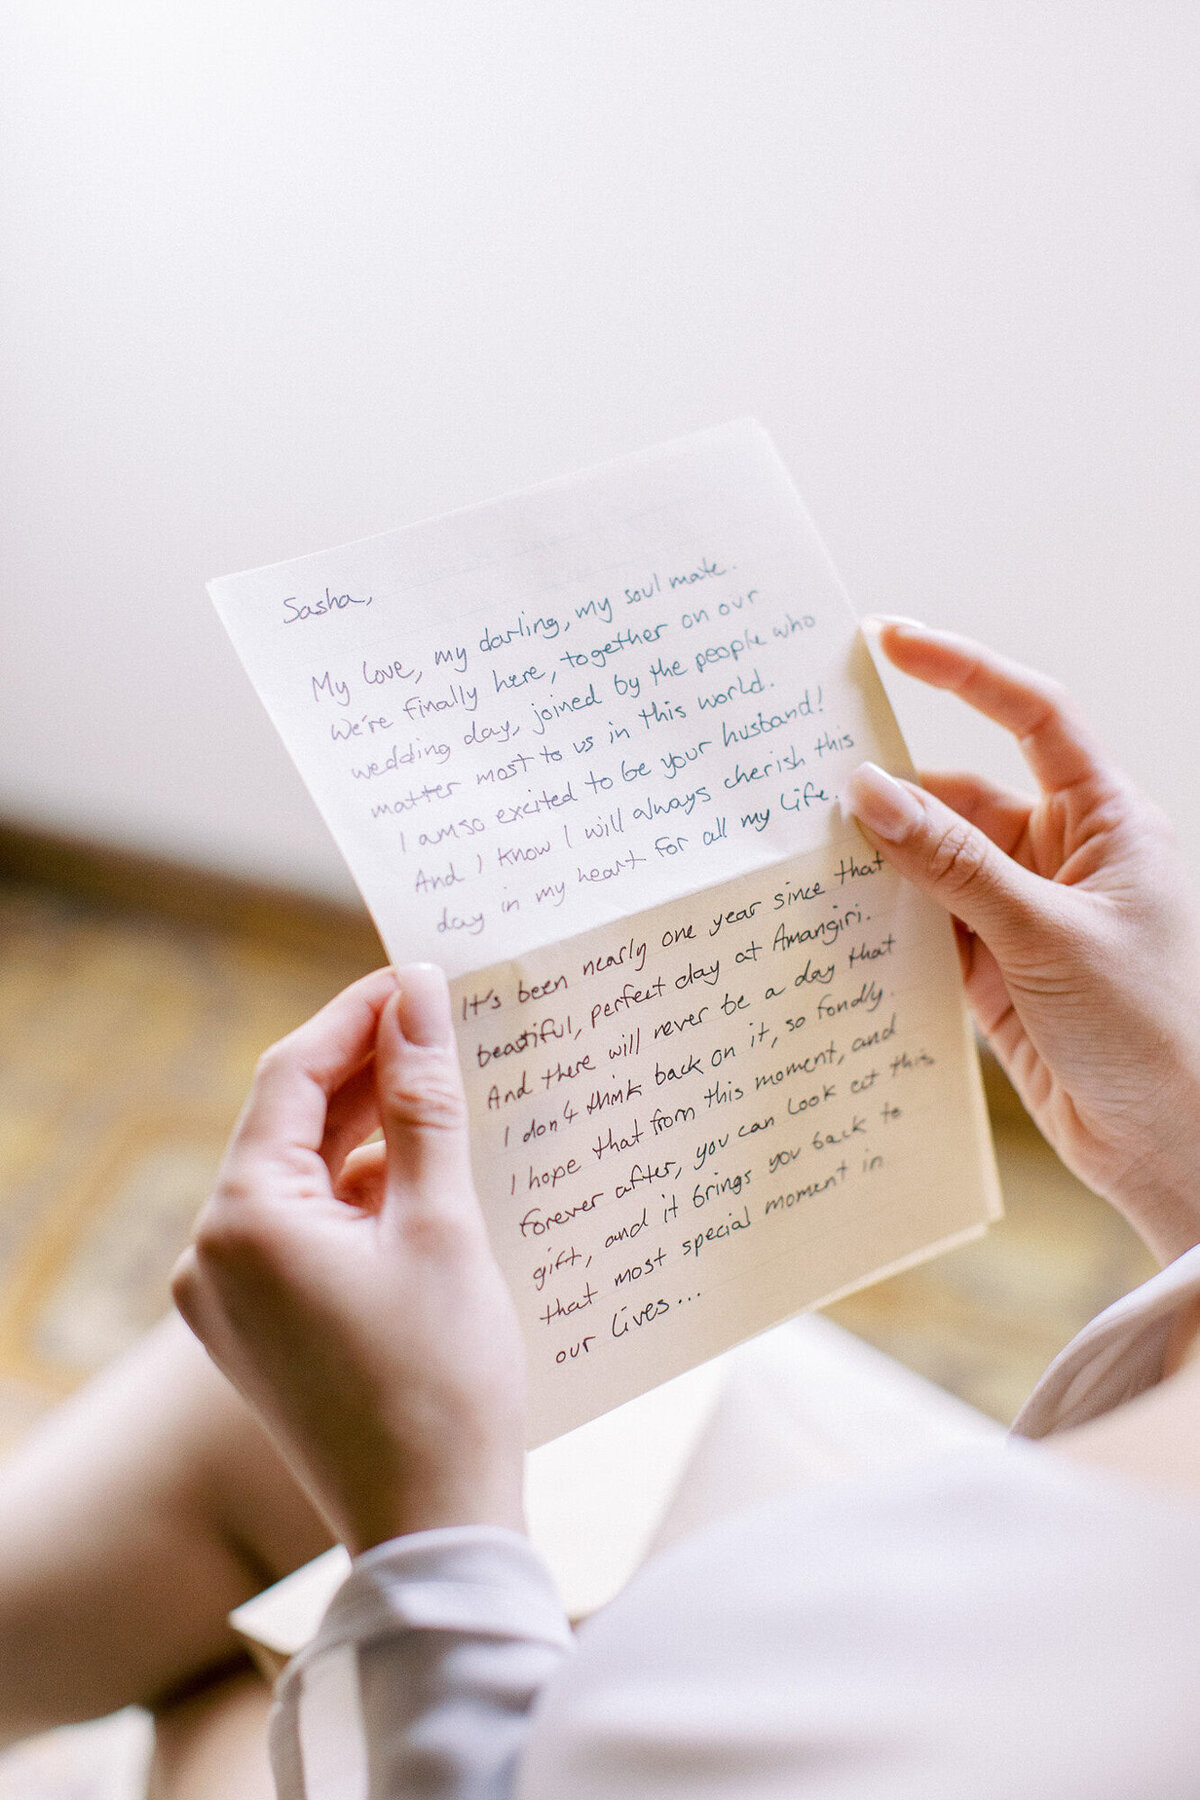 Sasha,
My love, my darling, my soul mate.
We're finally here, together on our
wedding day, joined by the people who
matter most to us in this world.
I am so excited to be your husband!
And I know I will always cherish this
day in my heart for all my life.
It's been nearly one year since that
beautiful, perfect day at Amangiri.
And there will never be a day that
I don't think back on it, so fondly.
I hope that from this moment, and
forever after, you can look at this
gift, and it brings you back to
that most special moment in
our lives...